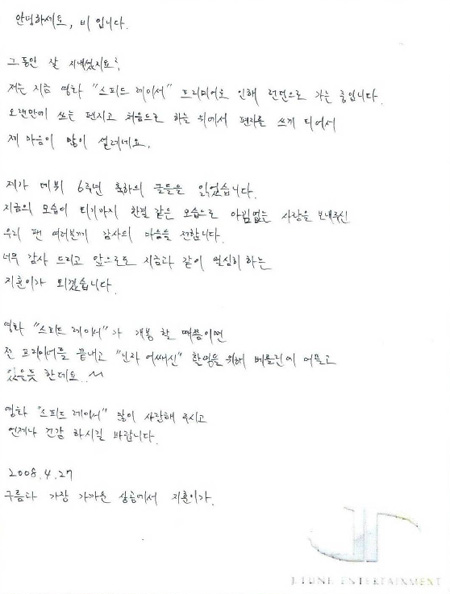 안녕하세요, 비 입니다.
그동안 잘 지내셨지요?
저는 지금 영화 "스피드 레이서" 프리미어로 인해 런던으로 가는 중입니다.
오랜만에 쓰는 편지고 처음으로 하늘 위에서 편지를 쓰게 되어서
제 마음이 많이 설레네요.
제가 데뷔 6주년 축하의 글들을 읽었습니다.
지금의 모습이 되기까지 한결 같은 모습으로 아낌없는 사랑을 보내주신
우리 팬 여러분께 감사의 마음을 전합니다.
너무 감사 드리고 앞으로도 지금과 같이 열심히 하는
지훈이가 되겠습니다.
영화 "스피드 레이서"가 개봉 할 때쯤이면
전 프리미어를 끝내고 "닌자 어쌔신" 촬영을 위해 베를린에 머물고
있을듯 한데요..~
영화 "스피드 레이서" 많이 사랑해 주시고
언제나 건강 하시길 바랍니다.
2008.4.27
구름과 가장 가까운 상공에서 지훈이가.
J.TUNE ENTERTAINMENT